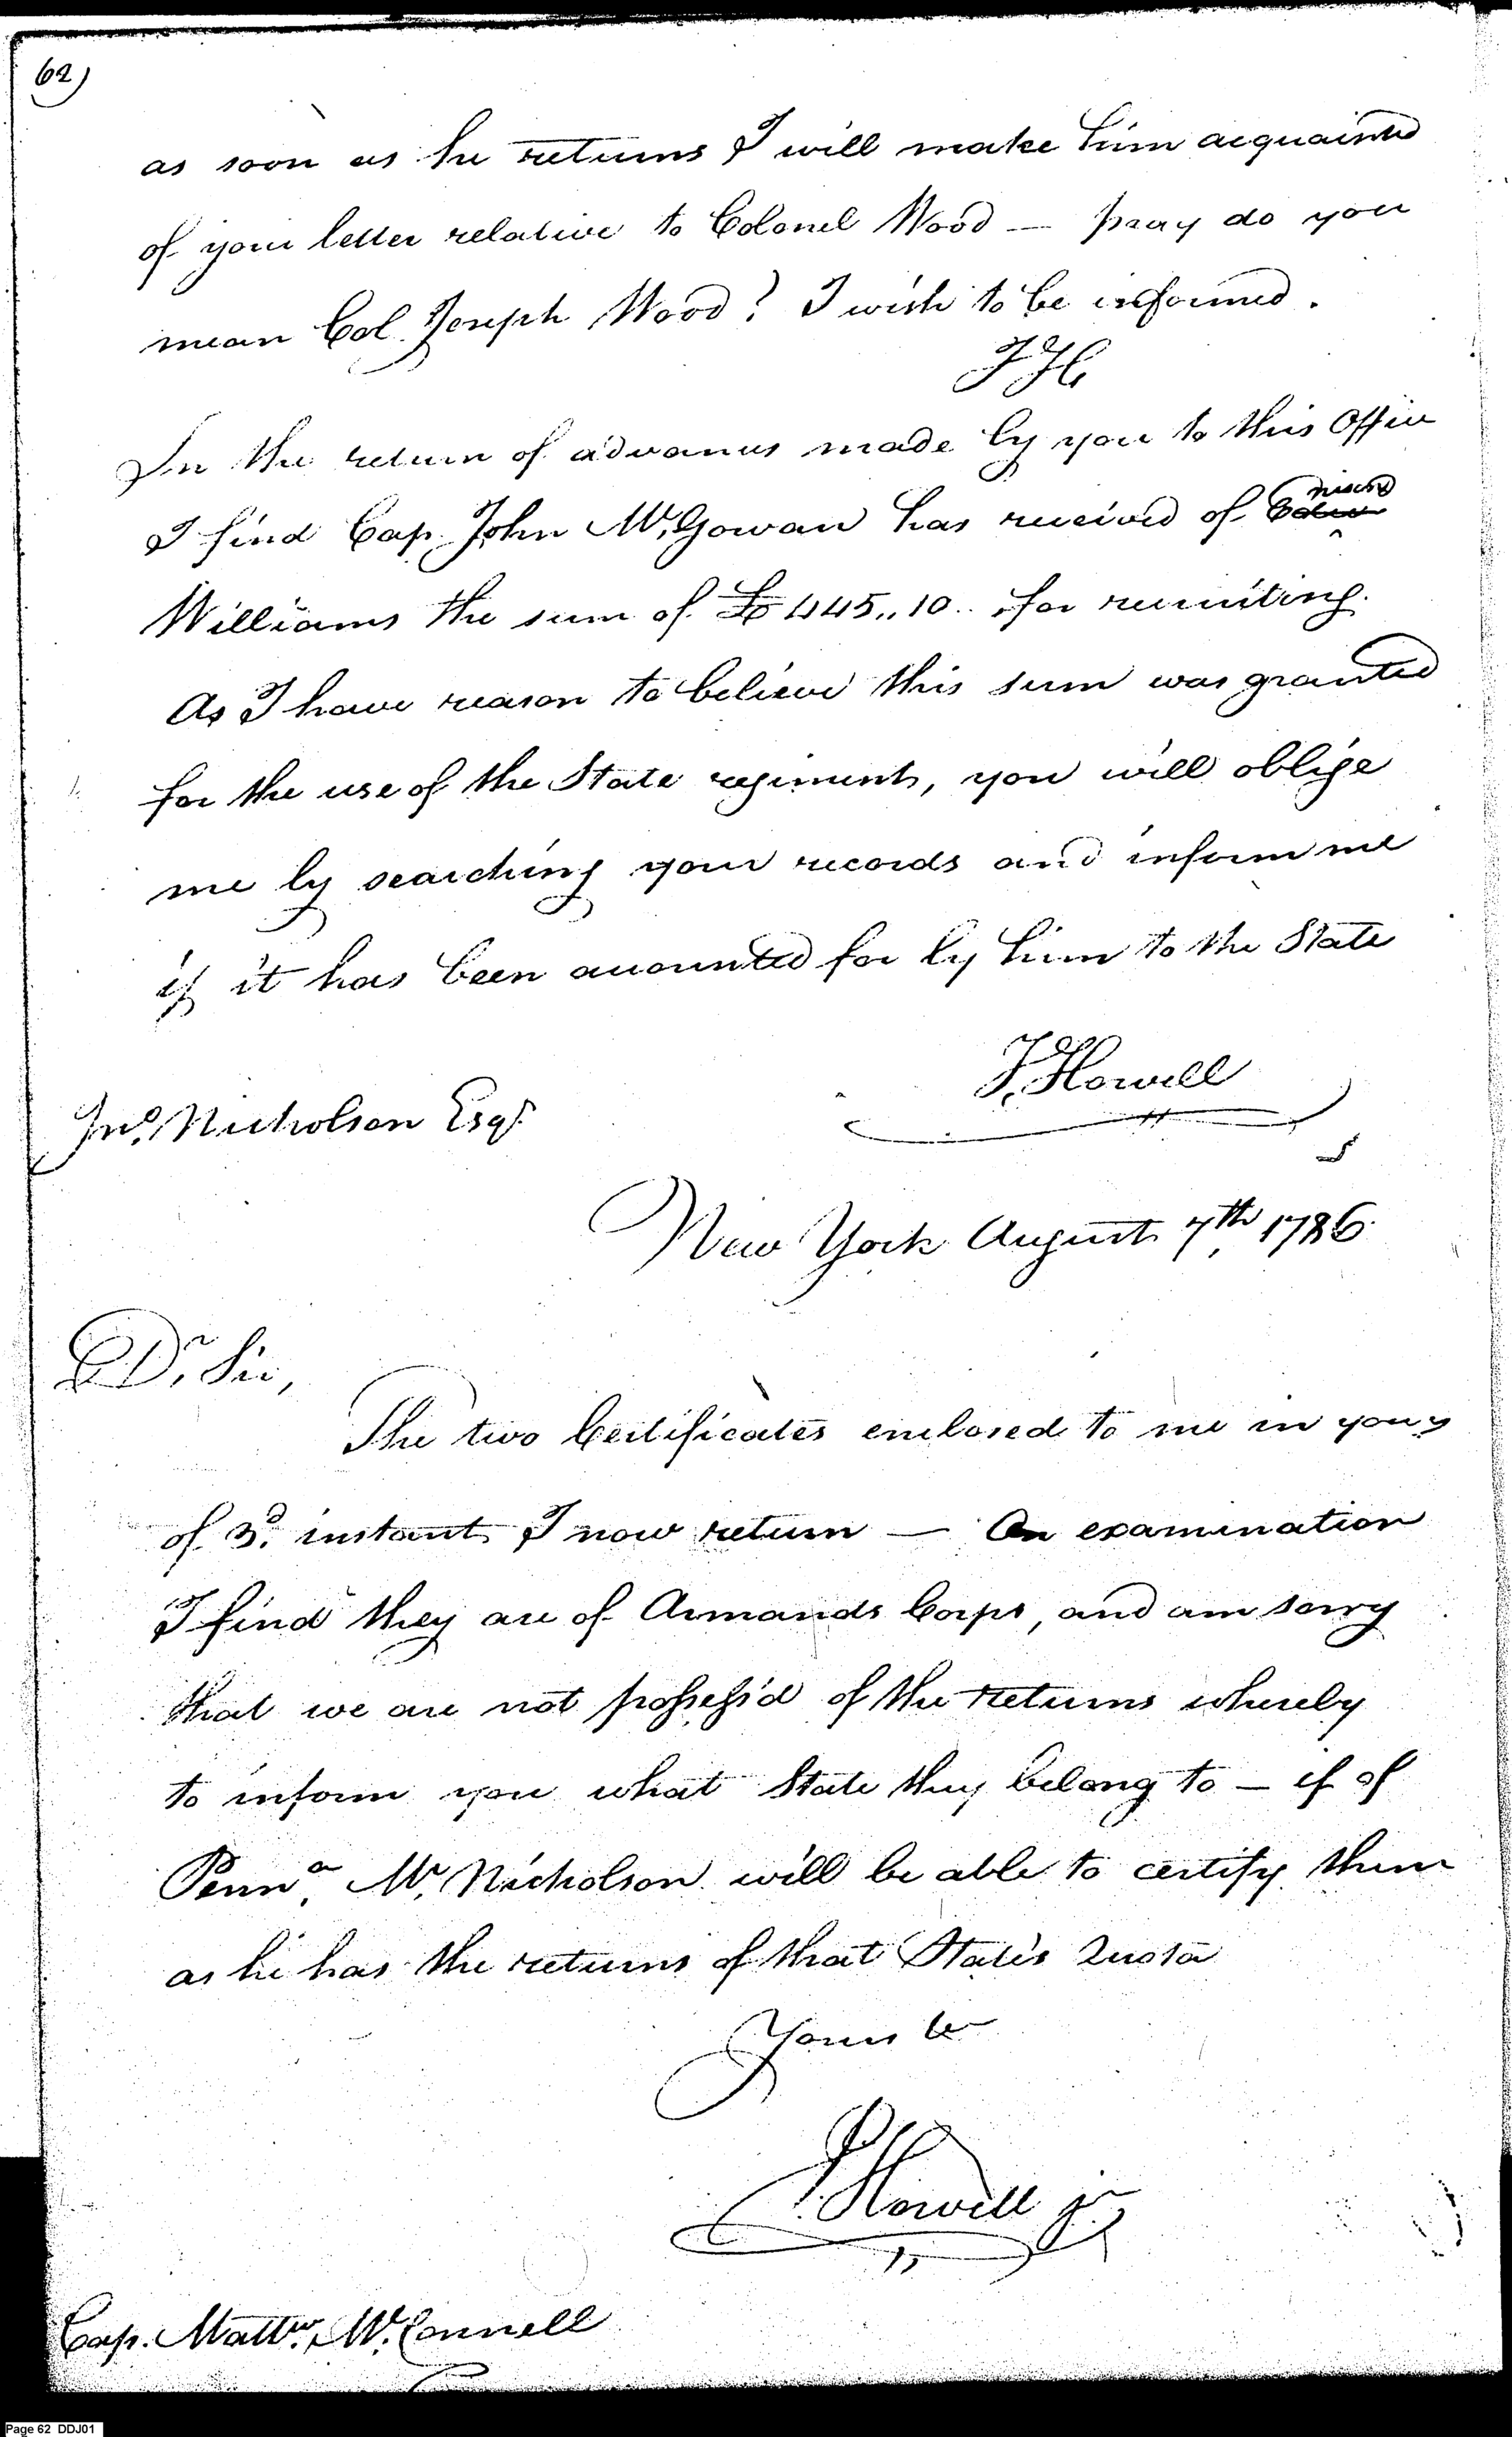 62)
as soon as he returns I will make him acquainted
of your letter relative to Colonel Wood — pray do you
mean Col. Joseph Wood? I wish to be informed.
J H
In the return of advances made by you to this Office
I find Cap. John Mc.Gowan has received of
Williams the sum of £ 445,, 10.. for recruiting.
As I have reason to believe this sum was granted
for the use of the State regiments, you will oblige
me by searching your records and inform me
if it has been accounted for by him to the State
J. Howell
Jno. Nicholson Esqr.
New York August 7th 1786.
Dr. Sir,
The two Certificates enclosed to me in yours
of 3d. instant I now return — On examination
I find they are of Armands Corps, and am sorry
that we are not possess'd of the returns whereby
to inform you what State they belong to — if of
Penna. Mr. Nicholson will be able to certify them
as he has the returns of that State's Quota
Yours &c
J. Howell jr.
Cap. Mattw. Mc.Connell
Page 62 DDJ01